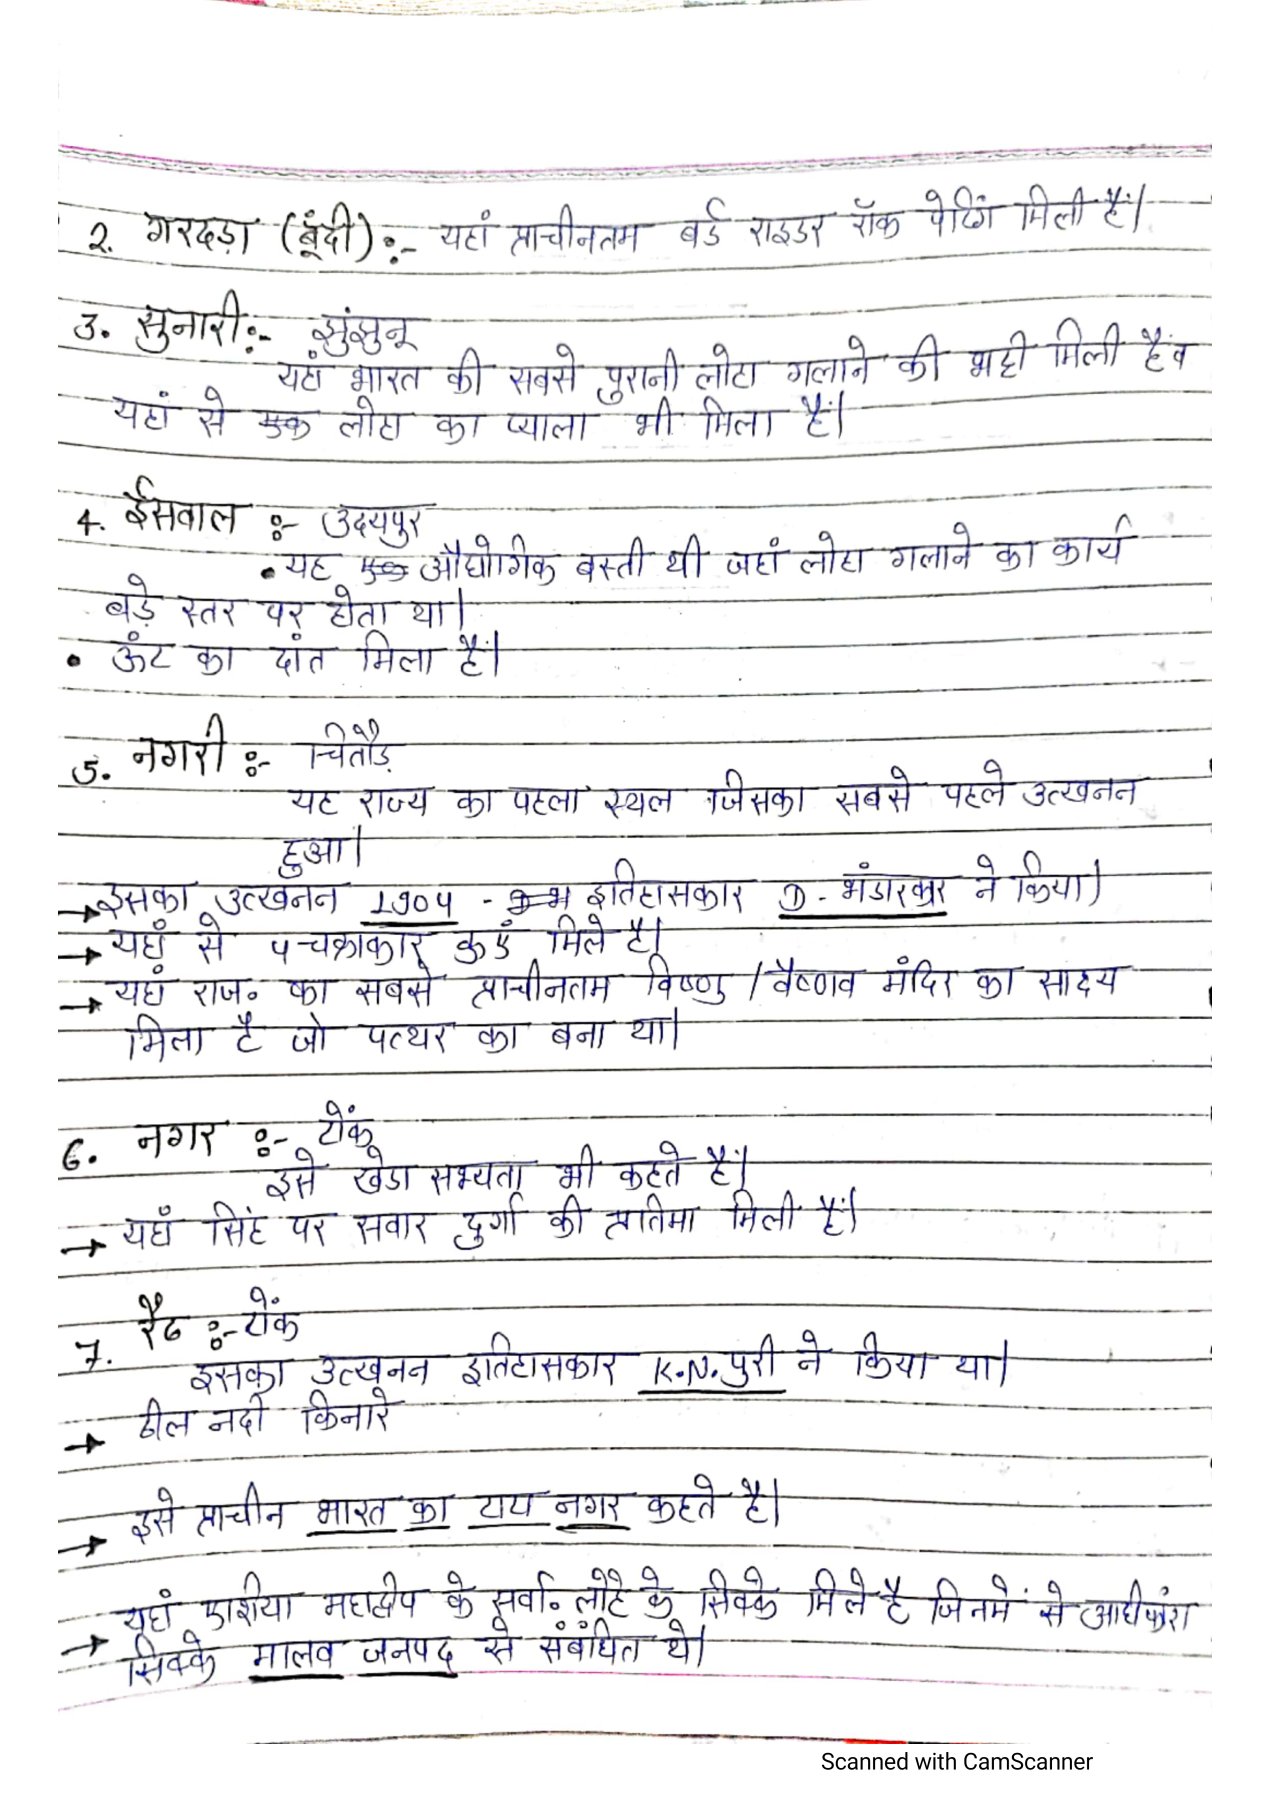 2. गरदड़ा (बूंदी):- यहां प्राचीनतम बर्ड राइडर रॉक पेटिंग मिली हैं|
3. सुनारी:- झुंझुनू
यहां भारत की सबसे पुरानी लोहा गलाने की भट्टी मिली हैं व
यहां से एक लोहा का प्याला भी मिला हैं|
4. ईसवाल :- उदयपुर
• यह औद्योगिक बस्ती थी जहां लोहा गलाने का कार्य
बड़े स्तर पर होता था|
• ऊंट का दांत मिला हैं|
5. नगरी :- चितौड़
यह राज्य का पहला स्थल जिसका सबसे पहले उत्खनन
हुआ|
→ इसका उत्खनन 1904 - इतिहासकार D. भंडारकर ने किया|
→ यहां से 4 चक्राकार कुएं मिले है|
→ यहां राज० का सबसे प्राचीनतम विष्णु / वैष्णव मंदिर का साक्ष्य
मिला है जो पत्थर का बना था|
6. नगर :- टोंक
इसे खेडा सभ्यता भी कहते हैं|
→ यहाँ सिंह पर सवार दुर्गा की प्रतिमा मिली हैं|
7. रैढ :- टोंक
इसका उत्खनन इतिहासकार K.N. पुरी ने किया था|
→ ढील नदी किनारे
→ इसे प्राचीन भारत का टाटा नगर कहते है|
→ यहां एशिया महाद्वीप के सर्वा० लोहे के सिक्के मिले है जिनमें से आधीकांश
सिक्के मालव जनपद से संबंधित थे|
Scanned with CamScanner